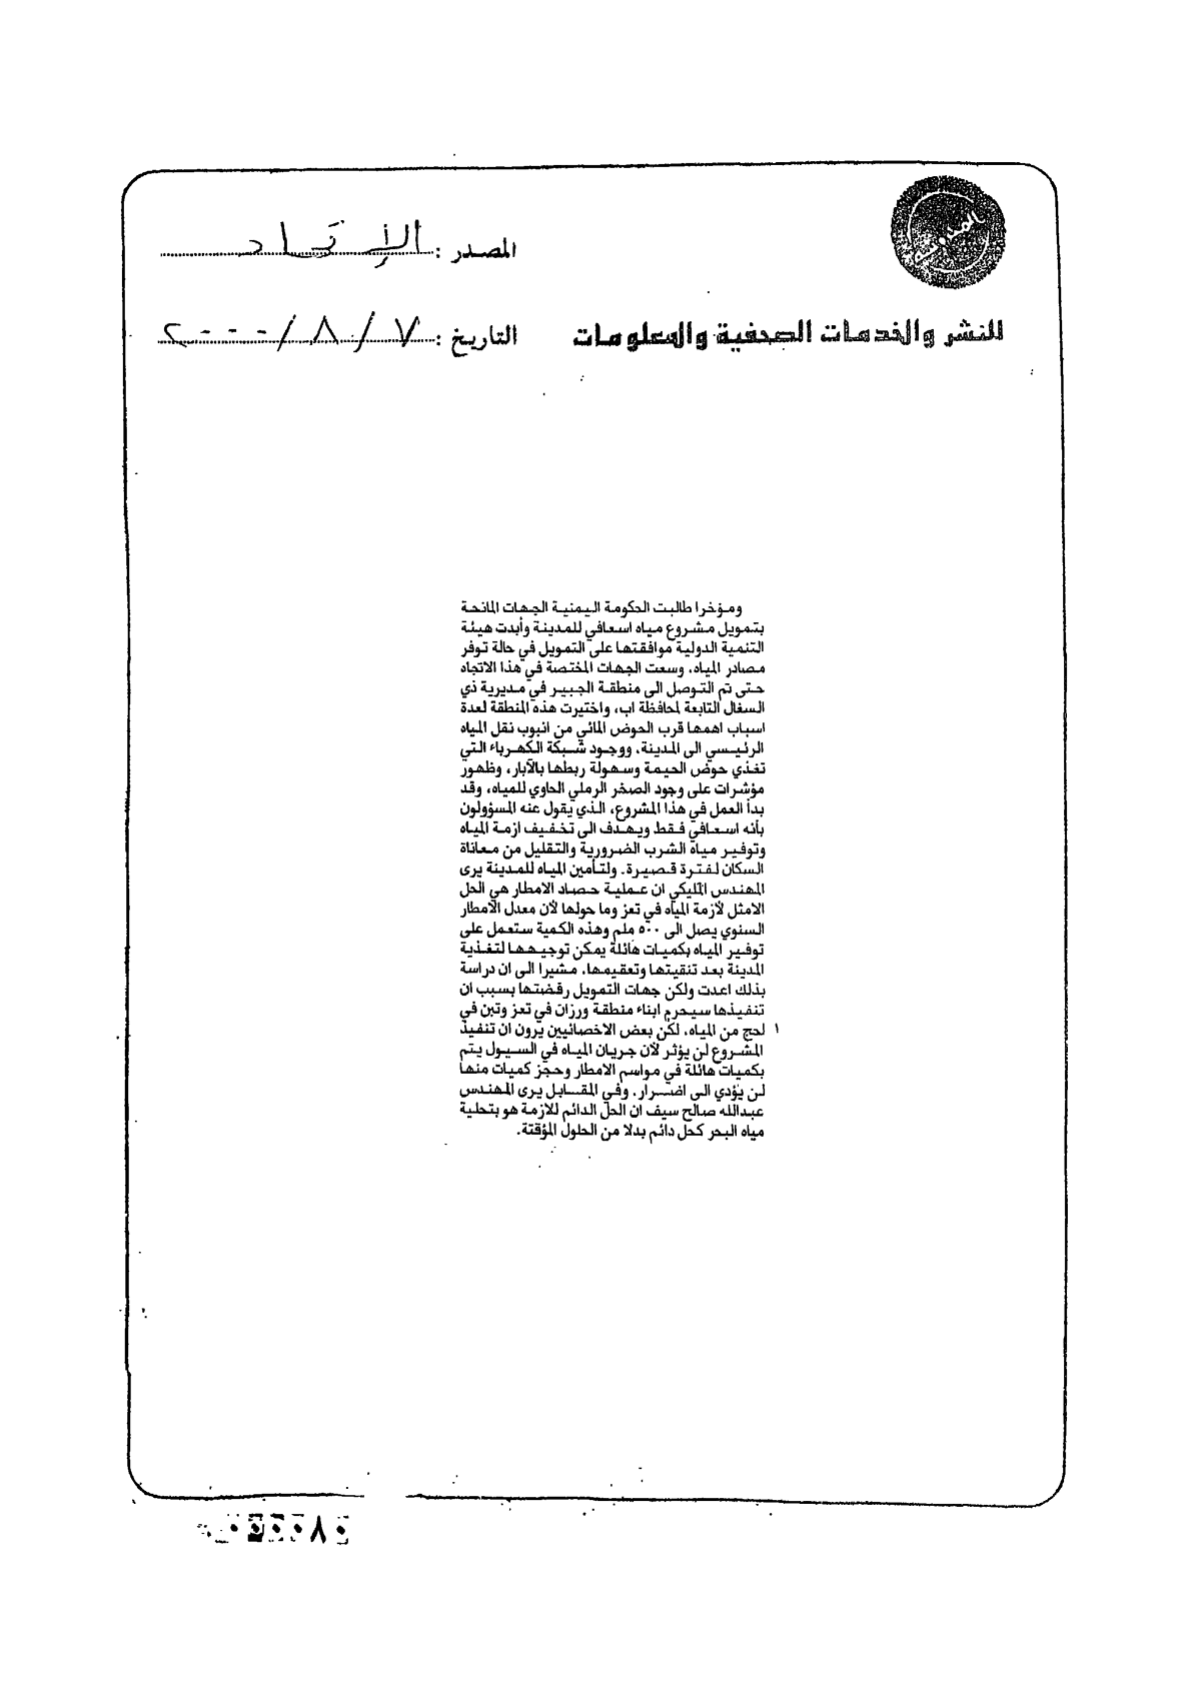 المصدر : الإتحاد
للنشر والخدمات الصحفية والمعلومات
التاريخ : ٧ / ٨ / ٢٠٠٠
ومؤخرا طالبت الحكومة اليمنية الجهات المانحة
بتمويل مشروع مياه اسعافي للمدينة وأبدت هيئة
التنمية الدولية موافقتها على التمويل في حالة توفر
مصادر المياه، وسعت الجهات المختصة في هذا الاتجاه
حتى تم التوصل الى منطقة الجبير في مديرية ذي
السفال التابعة لمحافظة اب، واختيرت هذه المنطقة لعدة
اسباب اهمها قرب الحوض المائي من انبوب نقل المياه
الرئيسي الى المدينة، ووجود شبكة الكهرباء التي
تغذي حوض الحيمة وسهولة ربطها بالآبار، وظهور
مؤشرات على وجود الصخر الرملي الحاوي للمياه، وقد
بدأ العمل في هذا المشروع، الذي يقول عنه المسؤولون
بأنه اسعافي فقط ويهدف الى تخفيف ازمة المياه
وتوفير مياه الشرب الضرورية والتقليل من معاناة
السكان لفترة قصيرة. ولتأمين المياه للمدينة يرى
المهندس المليكي ان عملية حصاد الامطار هي الحل
الامثل لأزمة المياه في تعز وما حولها لأن معدل الامطار
السنوي يصل الى ٥٠٠ ملم وهذه الكمية ستعمل على
توفير المياه بكميات هائلة يمكن توجيهها لتغذية
المدينة بعد تنقيتها وتعقيمها، مشيرا الى ان دراسة
بذلك اعدت ولكن جهات التمويل رفضتها بسبب ان
تنفيذها سيحرم ابناء منطقة ورزان في تعز وتبن في
لحج من المياه، لكن بعض الاخصائيين يرون ان تنفيذ
المشروع لن يؤثر لأن جريان المياه في السيول يتم
بكميات هائلة في مواسم الامطار وحجز كميات منها
لن يؤدي الى اضرار، وفي المقابل يرى المهندس
عبدالله صالح سيف ان الحل الدائم للازمة هو بتحلية
مياه البحر كحل دائم بدلا من الحلول المؤقتة.